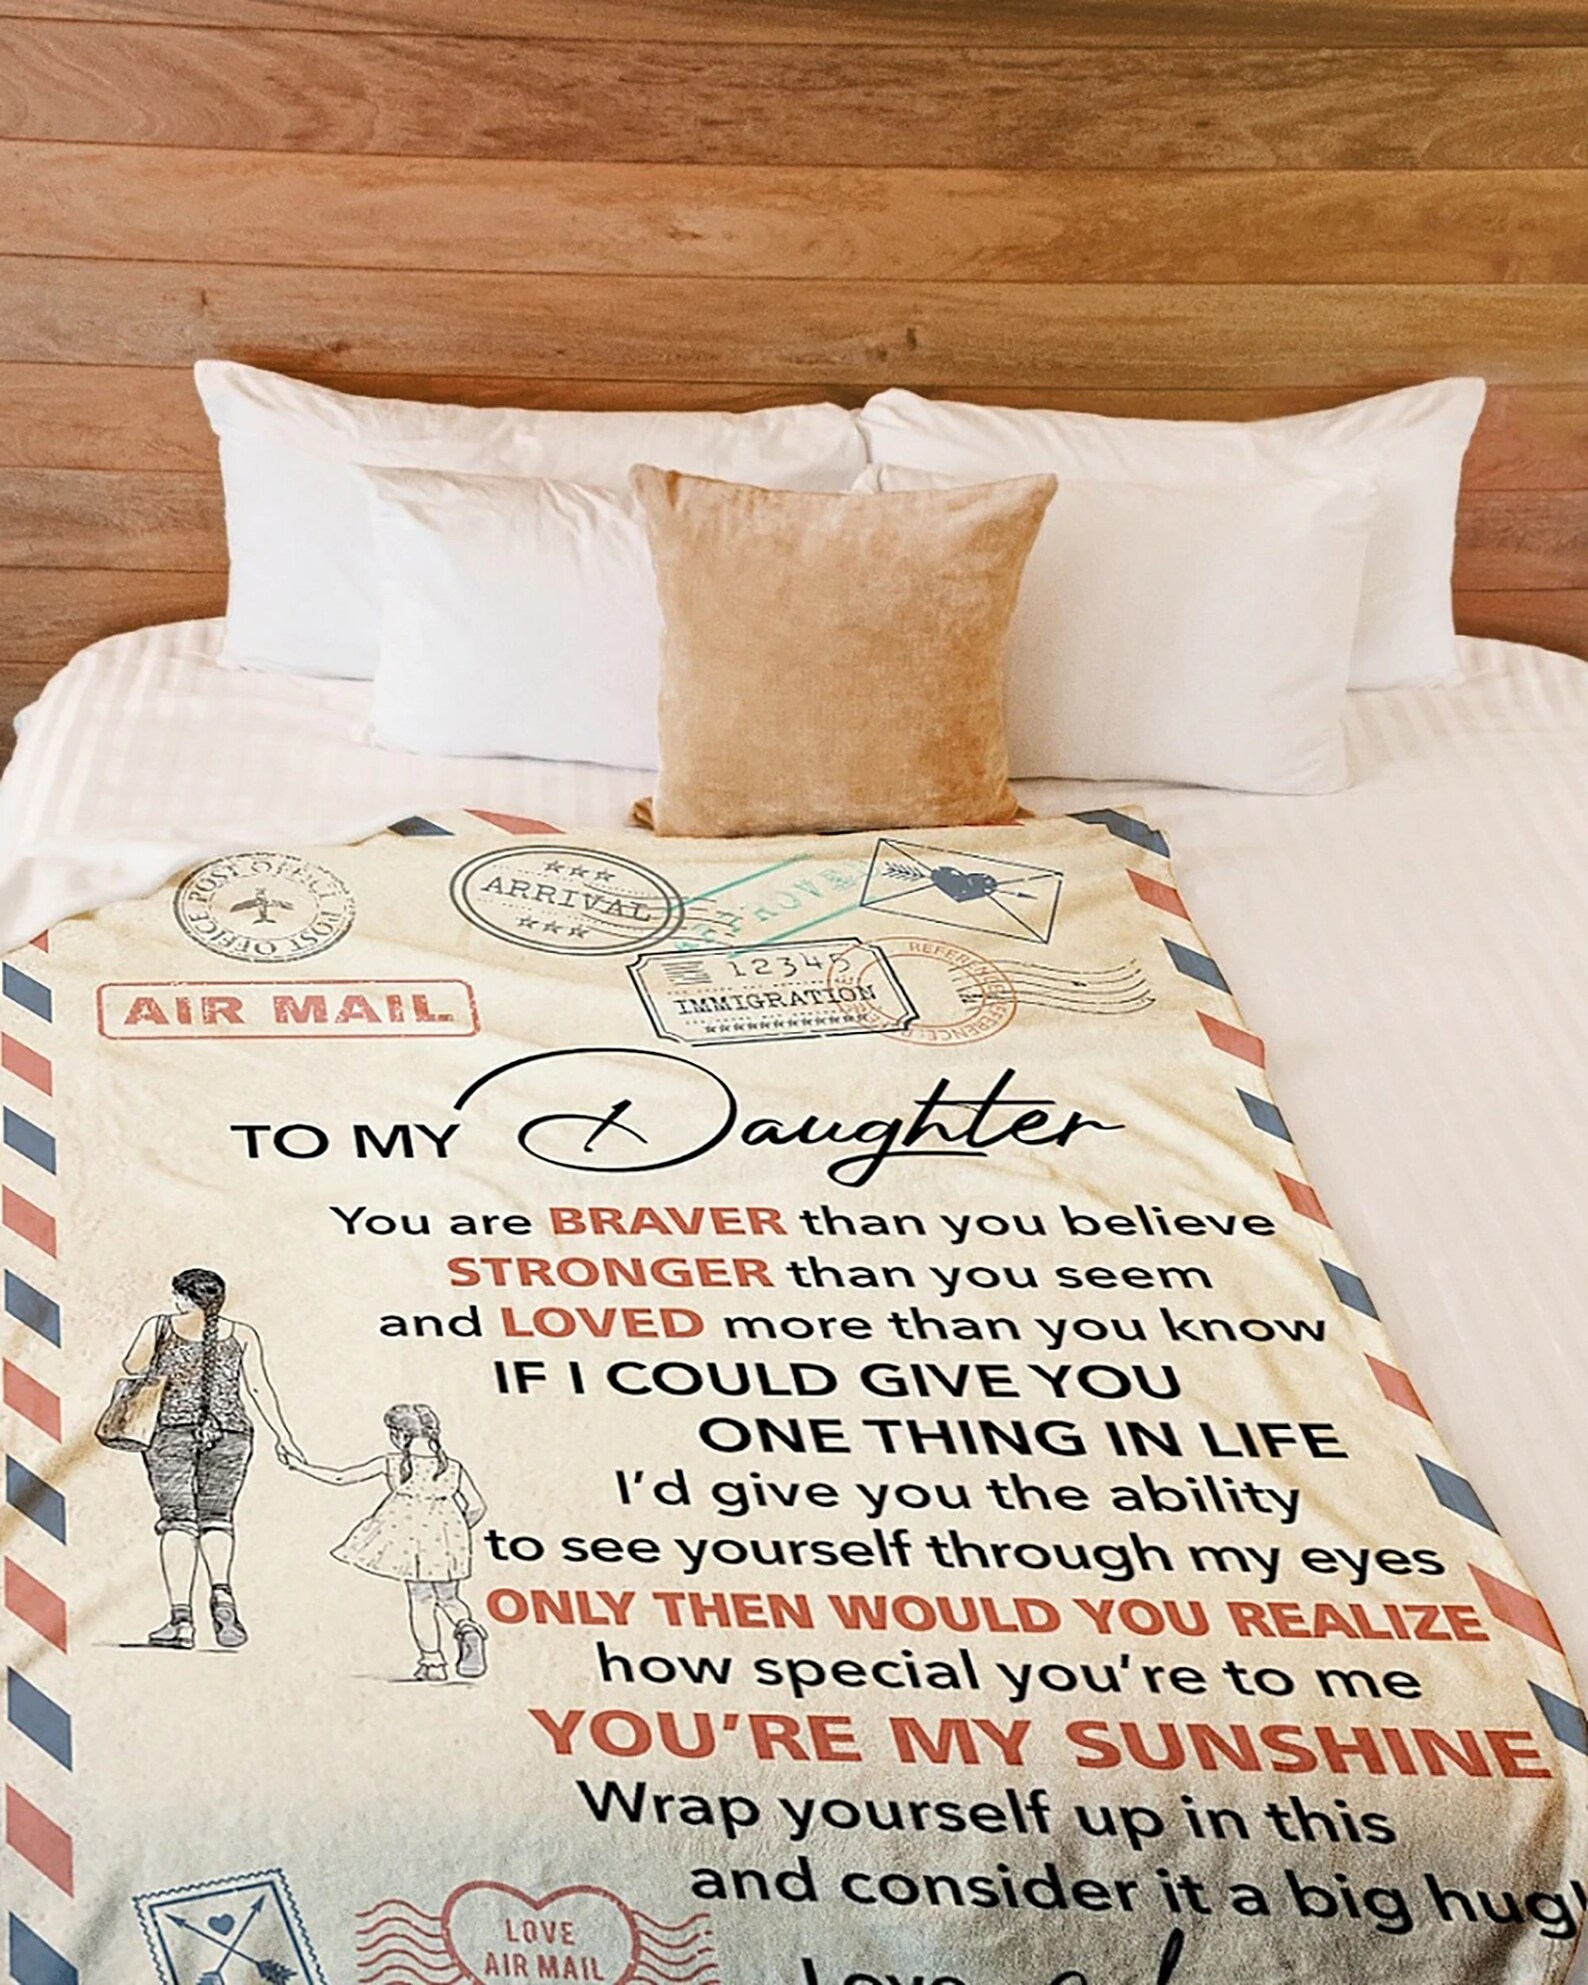 POST OFFICE POST OFFICE
ARRIVAL
APPROVED
12345
IMMIGRATION
REFERENCE
AIR MAIL
TO MY Daughter
You are BRAVER than you believe
STRONGER than you seem
and LOVED more than you know
IF I COULD GIVE YOU
ONE THING IN LIFE
I'd give you the ability
to see yourself through my eyes
ONLY THEN WOULD YOU REALIZE
how special you're to me
YOU'RE MY SUNSHINE
Wrap yourself up in this
and consider it a big hug!
LOVE
AIR MAIL
Love